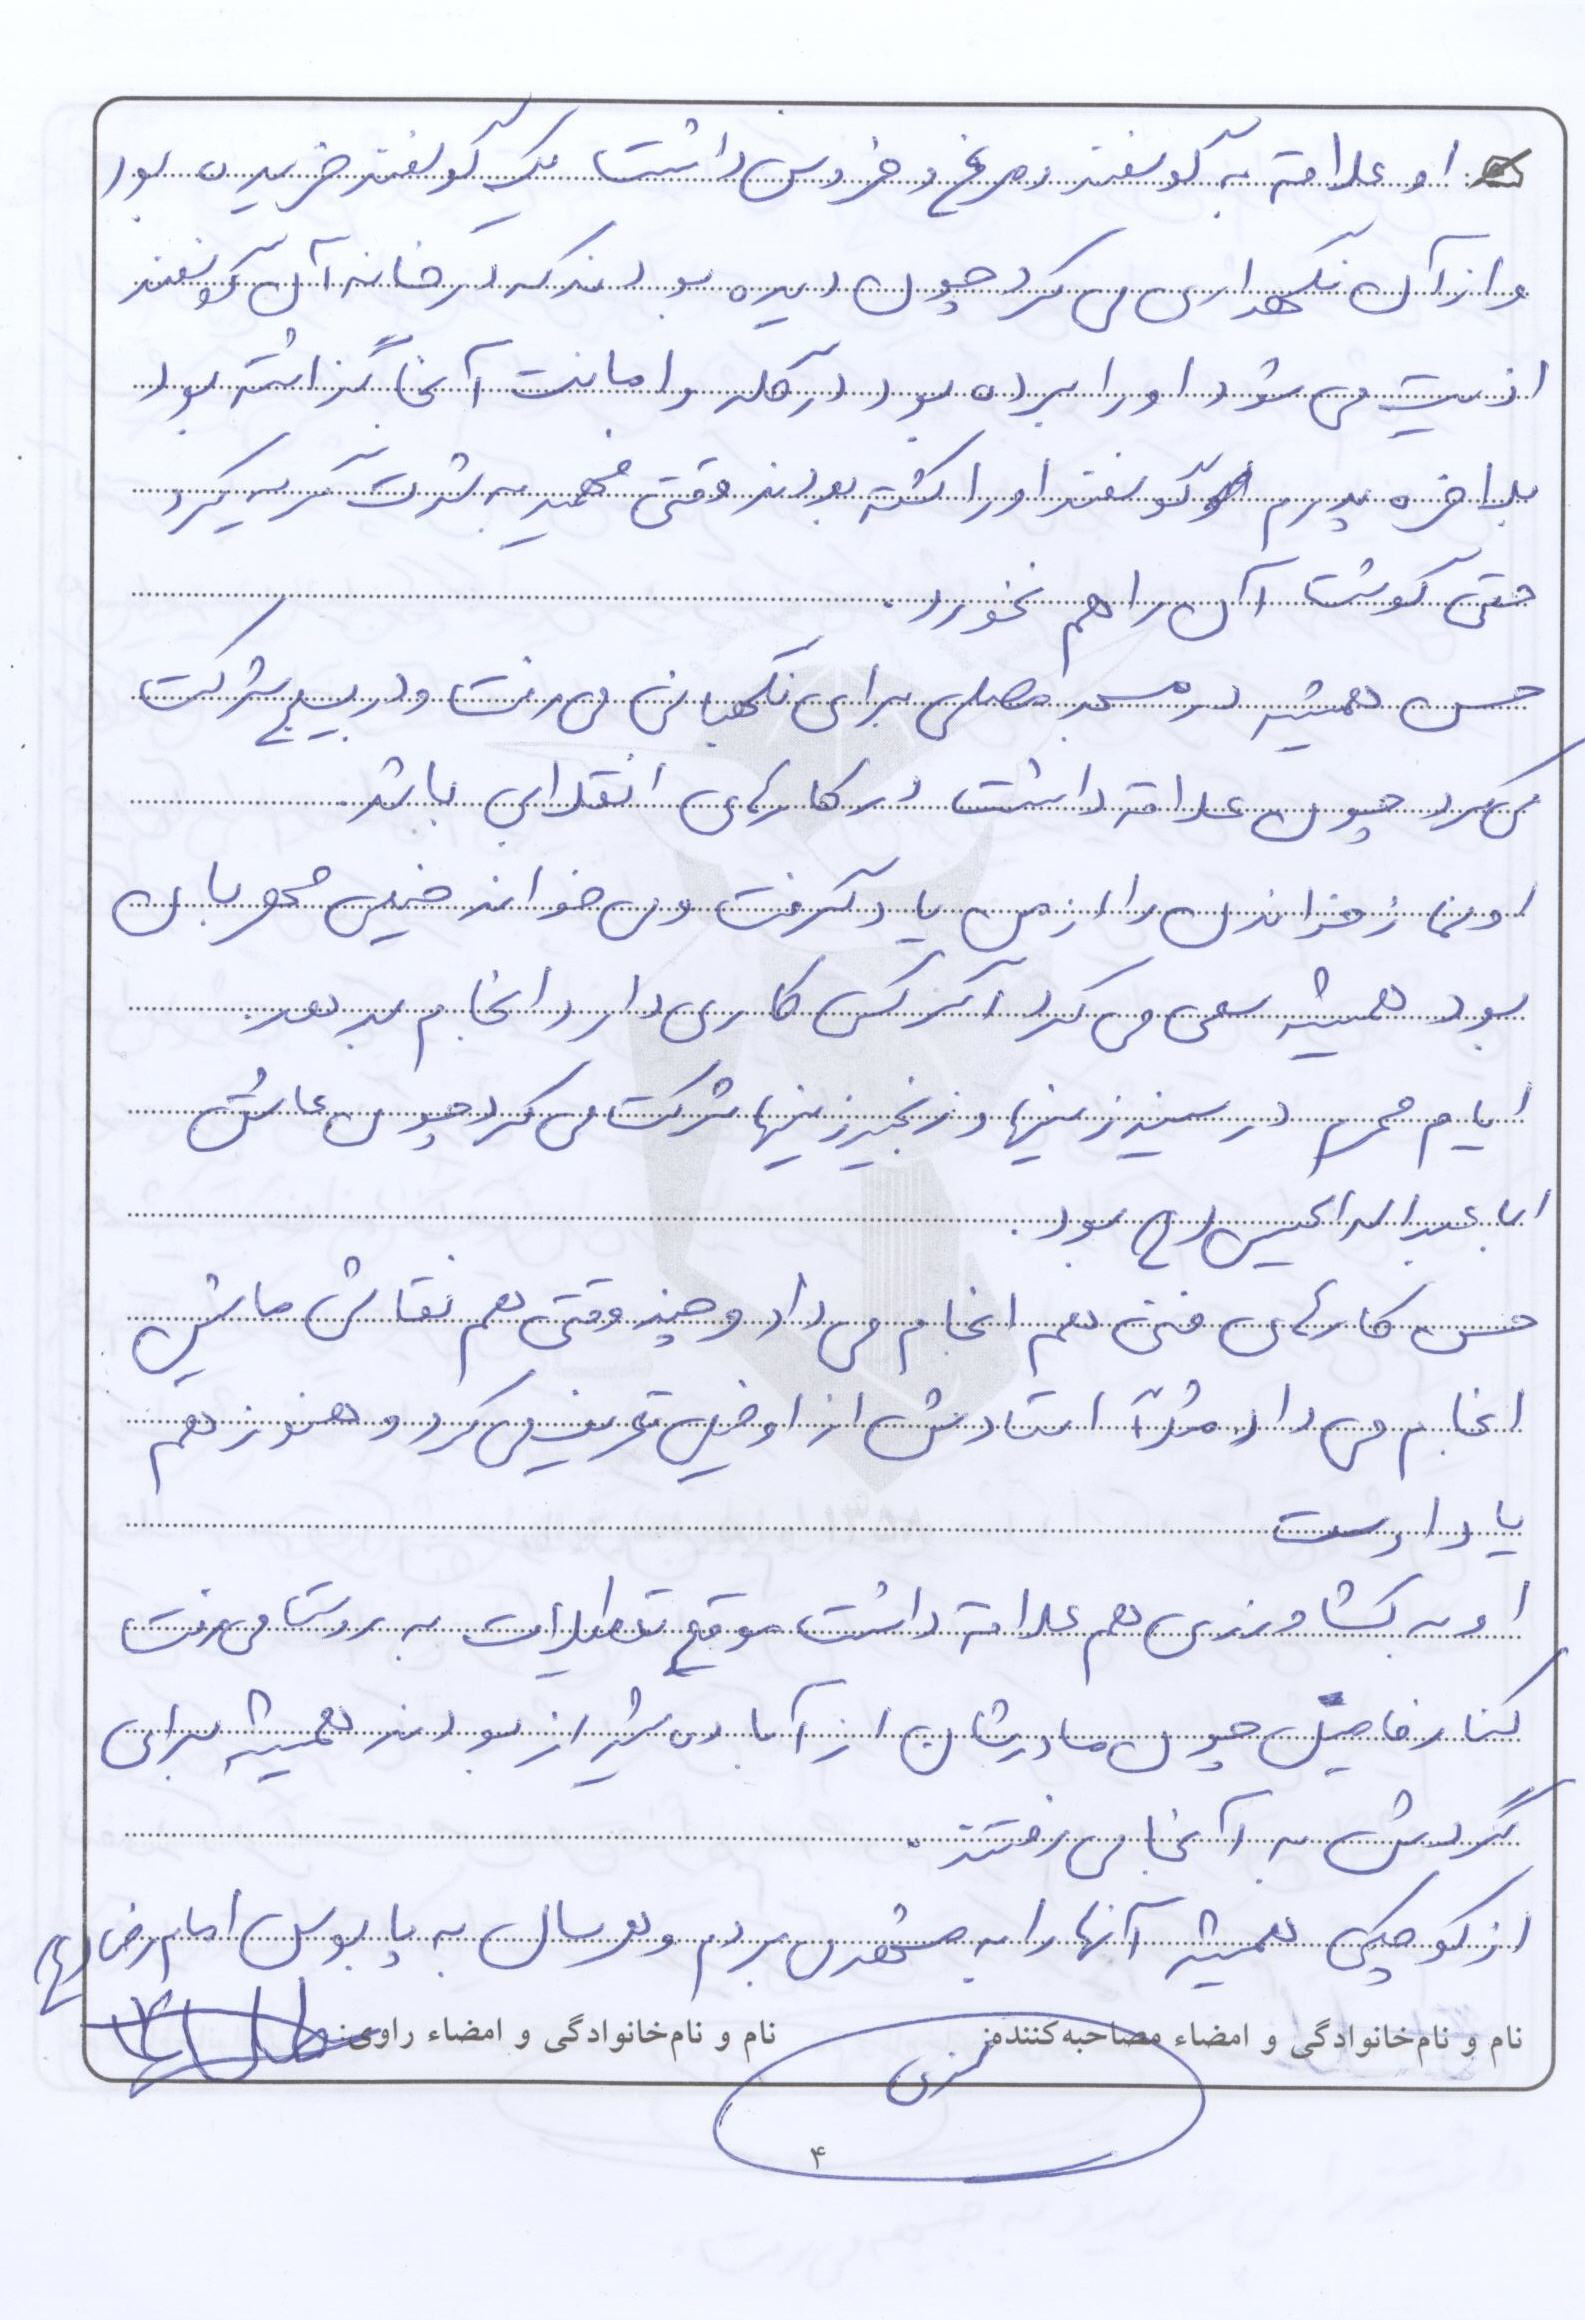 او علاقه به گوسفند و مرغ و خروس داشت یک گوسفند خریده بود
و از آن نگهداری می کرد چون دیده بودند که در خانه آن گوسفند
اذیت می شود او را برده بود در گله و امانت آنجا گذاشته بود
بلاخره پدرم گوسفند او را کشته بودند وقتی فهمید به شدت گریه کرد
حتی گوشت آن را هم نخورد.
حسن همیشه در مسجد مصلی برای نگهبانی می رفت و در بسیج شرکت
می کرد چون علاقه داشت در کارهای انقلابی باشد.
او نماز خواندن را از من یاد گرفت و می خواند خیلی مهربان
بود همیشه سعی می کرد اگر کسی کاری دارد انجام بدهد.
ایام محرم در سینه زینها و زنجیر زینها شرکت می کرد چون عاشق
ابا عبداله الحسین (ع) بود.
حسن کارهای فنی هم انجام می داد و چند وقتی هم نقاشی ماشین
انجام می داد مثلاً استادش از او خیلی تعریف می کرد و هنوز هم
یاد اوست
او به کشاورزی هم علاقه داشت موقع تعطیلات به روستا می رفت
کنار فامیل چون مادرشان از آباده شیراز بودند همیشه برای
گردش به آنجا می رفتند.
از کوچکی همیشه آنها را به مشهد می بردم و هر سال به پا بوس امام رضا (ع)
نام و نام‌خانوادگی و امضاء مصاحبه‌کننده: نام و نام‌خانوادگی و امضاء راوی:
۴